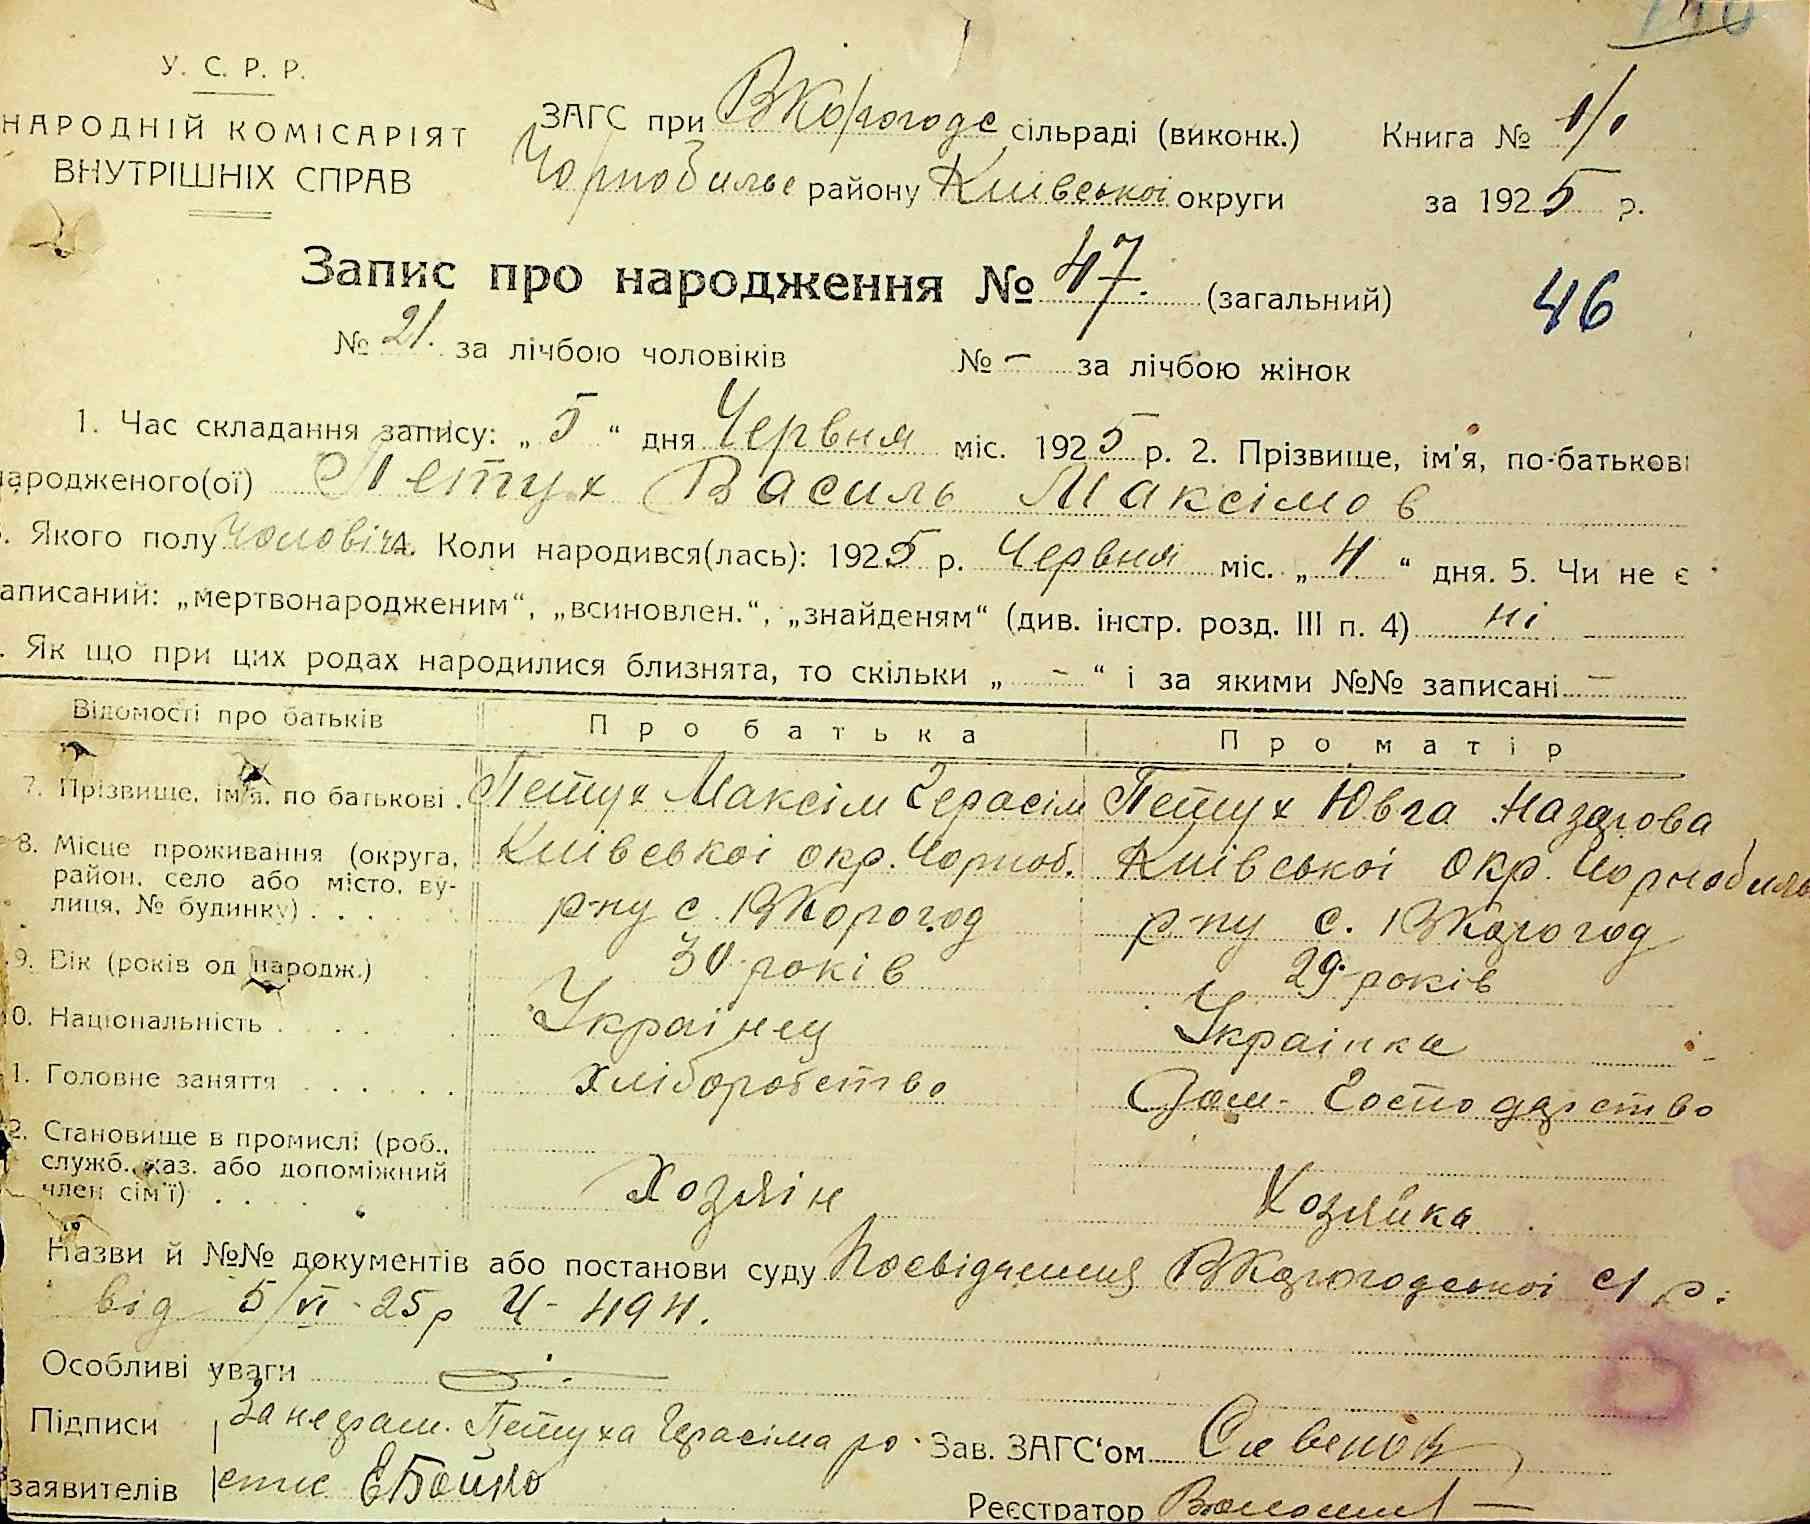 У. С. Р. Р.
НАРОДНІЙ КОМІСАРІЯТ
ВНУТРІШНІХ СПРАВ
ЗАГС при ВКорогодс сільраді (виконк.)
Чорнобильс району Київської округи
Книга № 1/1
за 1925 р.
Запис про народження № 47. (загальний)
46
№ 21. за лічбою чоловіків № – за лічбою жінок
1. Час складання запису: „ 5 “ дня Червня міс. 1925 р. 2. Прізвище, ім'я, по-батькові
народженого(ої) Петух Василь Максімов
. Якого полу Чоловіч 4. Коли народився(лась): 1925 р. Червня міс. „ 4 “ дня. 5. Чи не є
аписаний: „мертвонародженим“, „всиновлен.“, „знайденям“ (див. інстр. розд. III п. 4) ні
. Як що при цих родах народилися близнята, то скільки „ – “ і за якими №№ записані –
Відомості про батьків Про батька Про матір
7. Прізвище, ім'я, по батькові . Петух Максім Герасім Петух Ювга Назарова
8. Місце проживання (округа, район, село або місто, вулиця, № будинку) . . . . Київської окр. Чорноб. Київської Окр. Чорнобиль
р-ну с. ВКорогод р-ну с. ВКорогод
9. Вік (років од народж.) 30 років 29 років
0. Національність . . . . Українец Українка
1. Головне заняття . . . . . Хліборобство Дом. Господарство
2. Становище в промислі (роб., служб., каз. або допоміжний член сім'ї) . . . . . Хозяін Хозяйка
Назви й №№ документів або постанови суду Посвідчення ВКорогодської с/р.
від 5/VI-25р Ч- 494.
Особливі уваги
Підписи За неграм. Петуха Герасіма ро Зав. ЗАГС'ом
заявителів спис ЕБойко Реєстратор